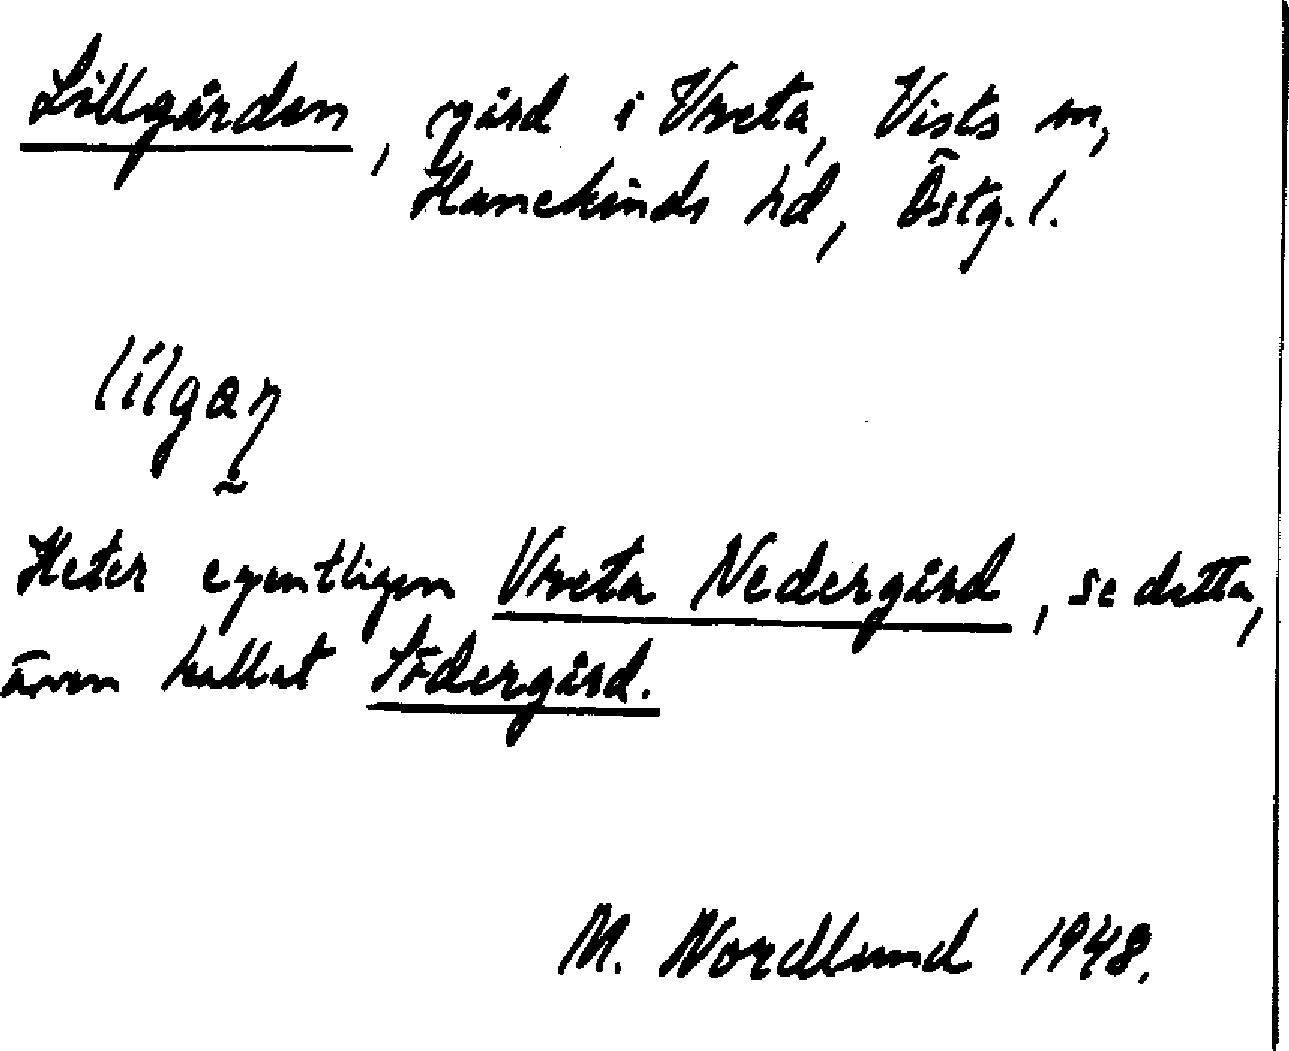 Lillgården, gård i Vreta, Vists sn,
Hanekinds hd, Östg. l.
Heter egentligen Vreta Nedergård, se detta,
även kallat Södergård.
M. Nordlund 1948.